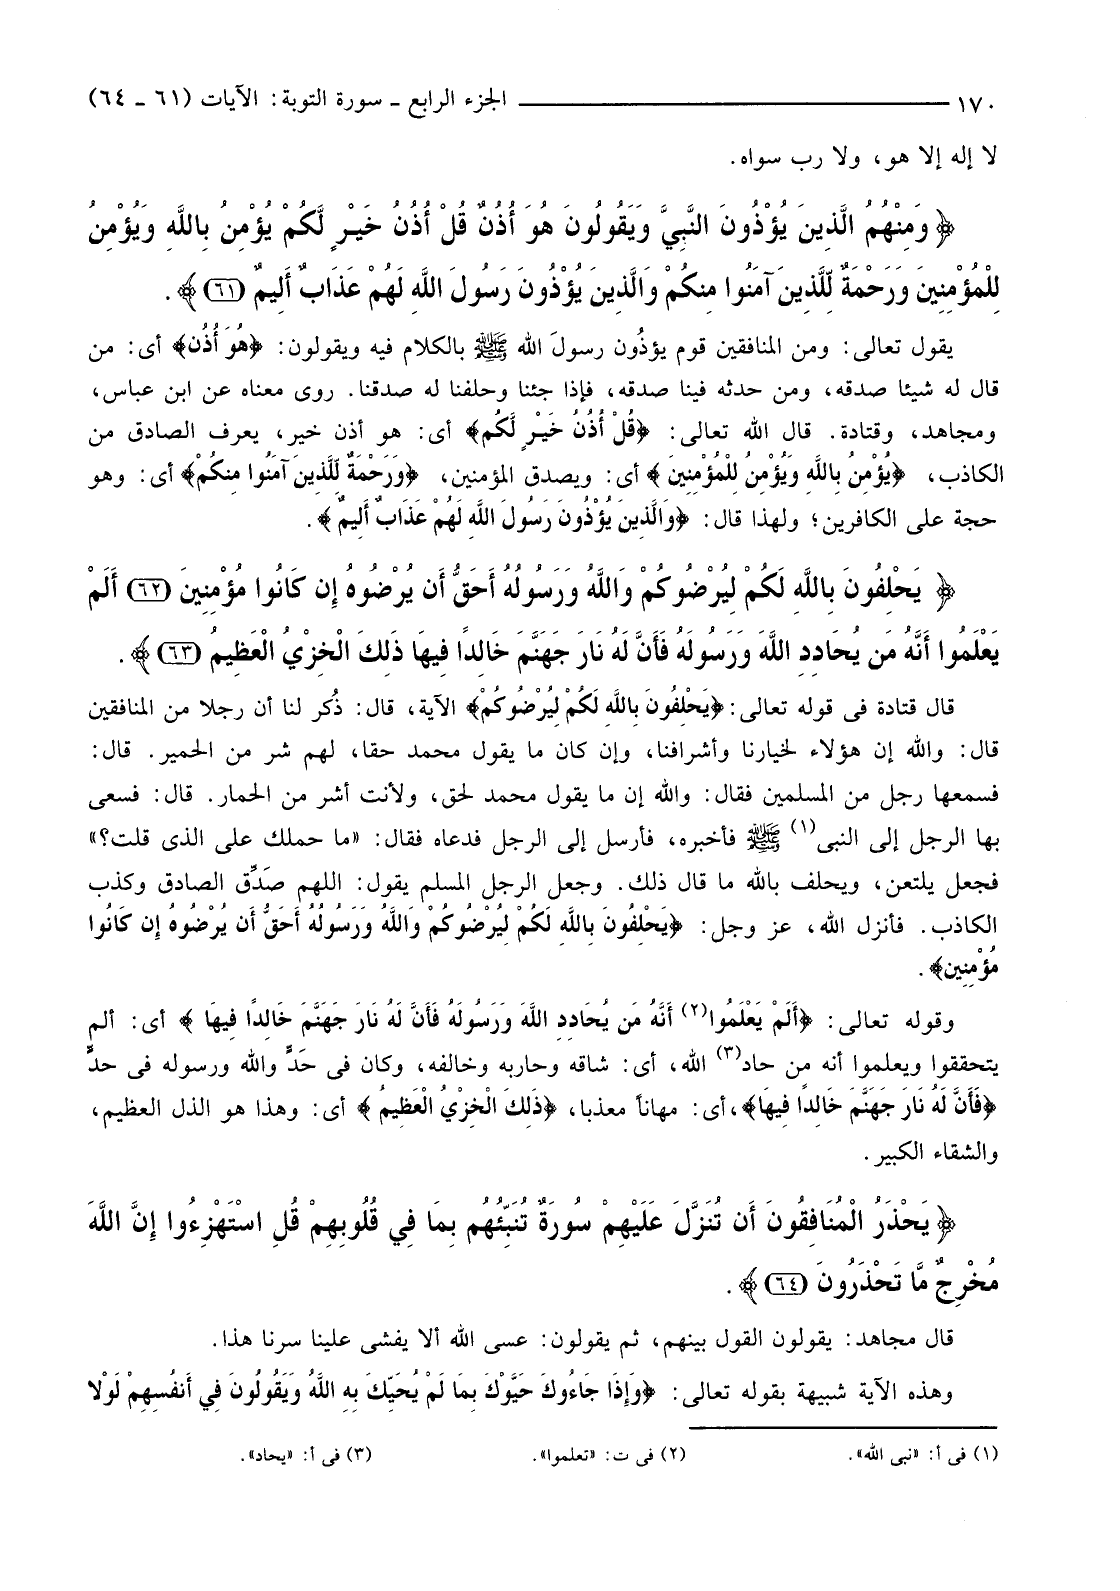 ١٧٠ ــــــــــــــــــــــــــــــــــــــــــــــــ الجزء الرابع ـ سورة التوبة: الآيات (٦١ ـ ٦٤)
لا إله إلا هو، ولا رب سواه.
﴿ وَمِنْهُمُ الَّذِينَ يُؤْذُونَ النَّبِيَّ وَيَقُولُونَ هُوَ أُذُنٌ قُلْ أُذُنُ خَيْرٍ لَّكُمْ يُؤْمِنُ بِاللَّهِ وَيُؤْمِنُ
لِلْمُؤْمِنِينَ وَرَحْمَةٌ لِّلَّذِينَ آمَنُوا مِنكُمْ وَالَّذِينَ يُؤْذُونَ رَسُولَ اللَّهِ لَهُمْ عَذَابٌ أَلِيمٌ (٦١) ﴾ .
يقول تعالى: ومن المنافقين قوم يؤذُون رسولَ الله ﷺ بالكلام فيه ويقولون: ﴿هُوَ أُذُنٌ﴾ أى: من
قال له شيئا صدقه، ومن حدثه فينا صدقه، فإذا جئنا وحلفنا له صدقنا. روى معناه عن ابن عباس،
ومجاهد، وقتادة. قال الله تعالى: ﴿قُلْ أُذُنُ خَيْرٍ لَّكُم﴾ أى: هو أذن خير، يعرف الصادق من
الكاذب، ﴿يُؤْمِنُ بِاللَّهِ وَيُؤْمِنُ لِلْمُؤْمِنِينَ ﴾ أى: ويصدق المؤمنين، ﴿وَرَحْمَةٌ لِّلَّذِينَ آمَنُوا مِنكُمْ﴾ أى: وهو
حجة على الكافرين؛ ولهذا قال: ﴿وَالَّذِينَ يُؤْذُونَ رَسُولَ اللَّهِ لَهُمْ عَذَابٌ أَلِيمٌ ﴾.
﴿ يَحْلِفُونَ بِاللَّهِ لَكُمْ لِيُرْضُوكُمْ وَاللَّهُ وَرَسُولُهُ أَحَقُّ أَن يُرْضُوهُ إِن كَانُوا مُؤْمِنِينَ (٦٢) أَلَمْ
يَعْلَمُوا أَنَّهُ مَن يُحَادِدِ اللَّهَ وَرَسُولَهُ فَأَنَّ لَهُ نَارَ جَهَنَّمَ خَالِدًا فِيهَا ذَلِكَ الْخِزْيُ الْعَظِيمُ (٦٣) ﴾ .
قال قتادة فى قوله تعالى: ﴿يَحْلِفُونَ بِاللَّهِ لَكُمْ لِيُرْضُوكُمْ﴾ الآية، قال: ذُكر لنا أن رجلا من المنافقين
قال: والله إن هؤلاء لخيارنا وأشرافنا، وإن كان ما يقول محمد حقا، لهم شر من الحمير. قال:
فسمعها رجل من المسلمين فقال: والله إن ما يقول محمد لحق، ولأنت أشر من الحمار. قال: فسعى
بها الرجل إلى النبى(١) ﷺ فأخبره، فأرسل إلى الرجل فدعاه فقال: «ما حملك على الذى قلت؟»
فجعل يلتعن، ويحلف بالله ما قال ذلك. وجعل الرجل المسلم يقول: اللهم صَدِّق الصادق وكذب
الكاذب. فأنزل الله، عز وجل: ﴿يَحْلِفُونَ بِاللَّهِ لَكُمْ لِيُرْضُوكُمْ وَاللَّهُ وَرَسُولُهُ أَحَقُّ أَن يُرْضُوهُ إِن كَانُوا
مُؤْمِنِين﴾.
وقوله تعالى: ﴿أَلَمْ يَعْلَمُوا(٢) أَنَّهُ مَن يُحَادِدِ اللَّهَ وَرَسُولَهُ فَأَنَّ لَهُ نَارَ جَهَنَّمَ خَالِدًا فِيهَا ﴾ أى: ألم
يتحققوا ويعلموا أنه من حاد(٣) الله، أى: شاقه وحاربه وخالفه، وكان فى حَدٍّ والله ورسوله فى حدٍّ
﴿فَأَنَّ لَهُ نَارَ جَهَنَّمَ خَالِدًا فِيهَا﴾،أى: مهاناً معذبا، ﴿ذَلِكَ الْخِزْيُ الْعَظِيمُ ﴾ أى: وهذا هو الذل العظيم،
والشقاء الكبير.
﴿ يَحْذَرُ الْمُنَافِقُونَ أَن تُنَزَّلَ عَلَيْهِمْ سُورَةٌ تُنَبِّئُهُم بِمَا فِي قُلُوبِهِمْ قُلِ اسْتَهْزِءُوا إِنَّ اللَّهَ
مُخْرِجٌ مَّا تَحْذَرُونَ (٦٤) ﴾ .
قال مجاهد: يقولون القول بينهم، ثم يقولون: عسى الله ألا يفشى علينا سرنا هذا.
وهذه الآية شبيهة بقوله تعالى: ﴿وَإِذَا جَاءُوكَ حَيَّوْكَ بِمَا لَمْ يُحَيِّكَ بِهِ اللَّهُ وَيَقُولُونَ فِي أَنفُسِهِمْ لَوْلا
(١) فى أ: «نبى الله». (٢) فى ت: «تعلموا». (٣) فى أ: «يحاد».